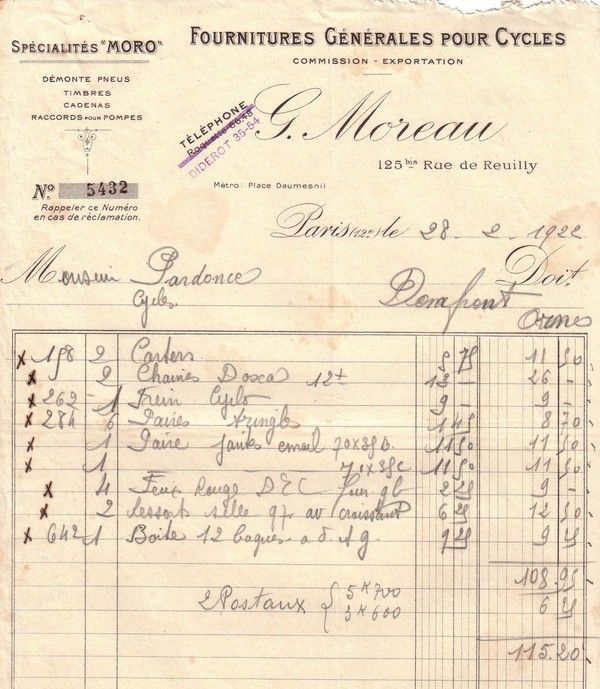 SPÉCIALITÉS "MORO"
DÉMONTE PNEUS
TIMBRES
CADENAS
RACCORDS POUR POMPES
FOURNITURES GÉNÉRALES POUR CYCLES
COMMISSION - EXPORTATION
TÉLÉPHONE
DIDEROT 35-64
G. Moreau
125 bis Rue de Reuilly
Métro: Place Daumesnil
No. 5432
Rappeler ce Numéro
en cas de réclamation.
Paris (12e) le 28 - 2 - 1922
Monsieur Pardonce Doit
Cycles Domfront
Orne
x 198 2 Carters 5 75 11 50
x 2 Chaines Doxa 12t 13 - 26 -
x 262 - 1 Frein Cyclo 9 - 9 -
x 284 6 Paires Tringles 1 45 8 70
x 1 Paire jantes email 70x35B 11 50 11 50
x 1 70x35C 11 50 11 50
x 4 Feux Rouge DEC 2 25 9 -
x 2 ressort selle av croissant 6 25 12 50
x 642 1 Boite 12 bagues 9 25 9 25
108.95
2 Postaux { 5K700 6 25
3K600
115.20